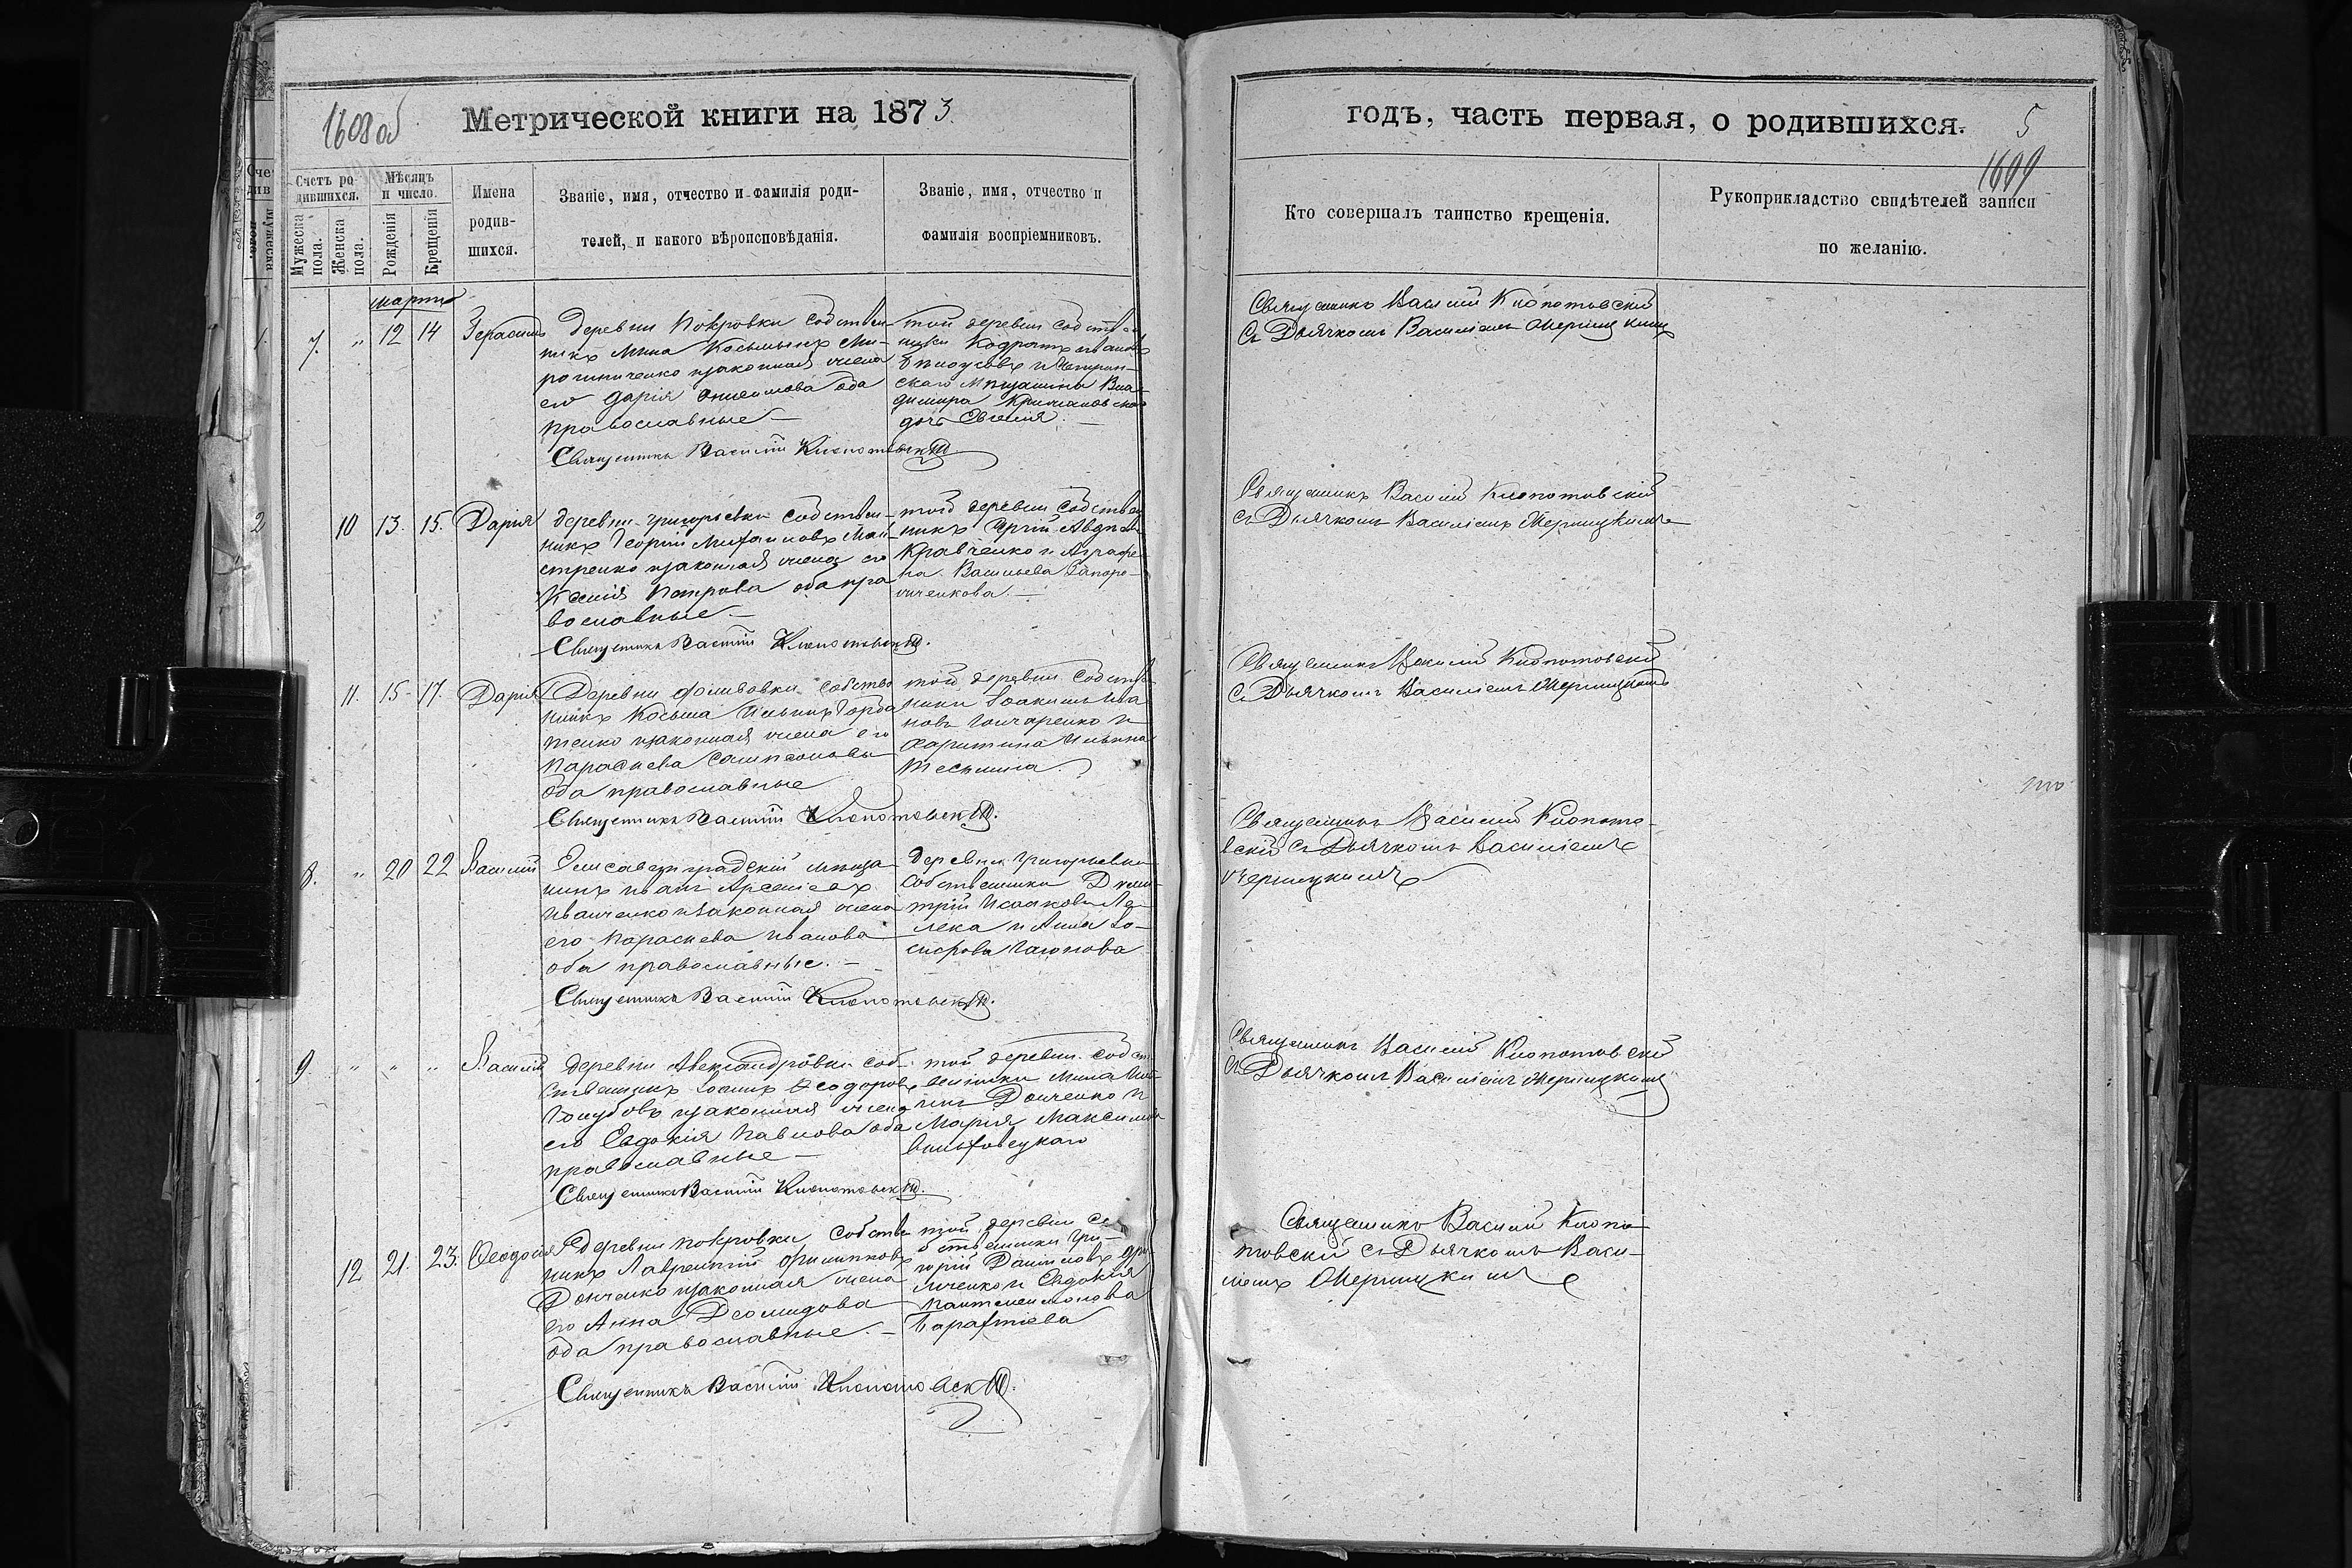 1608 об
Метрической книги на 1873
Счетъ родившихся.
Мужеска пола.
Женска пола.
Мѣсяцъ и число.
Рожденія
Крещенія
Имена родившихся.
Званіе, имя, отчество и фамилія роди-
телей, и какого вѣроисповѣданія.
Званіе, имя, отчество и
фамилія воспріемниковъ.
мартъ
7. " 12 14 Герасимъ
деревни Покровки собствен-
никъ Мина Косьминъ
законная жена
его Дарія оба
православные —
Священникъ Василій Клопотовскій
той деревни собствен-
ники
скаго мѣщанина Вла-
димира
дочь Евгенія. —
10 13. 15. Дарія
деревни Григорьевки собствен-
никъ Георгій Михаиловъ Май-
стренко и законная жена его
Ксенія Петрова оба пра
вославные —
Священникъ Василій Клопотовскій.
той деревни собствен
никъ
Кравченко и Аграфе-
на Васильева Запоро-
жченкова. —
11. 15 17. Дарія
Деревни собствен
никъ Косьма Ильинъ Горба
тенко и законная жена его
Параскева Сампсонова
оба православные
Священникъ Василій Клопотовскій.
той деревни собств
ники Іоакимъ Ива
новъ Гончаренко и
Харитина Ильина
8. " 20 22 Василій
Елисаветградскій мѣща
нинъ Иванъ
Иванченко и законная жена
его Параскева Иванова
оба православные. —
Священникъ Василій Клопотовскій.
деревни Григорьевки
собственники Дми-
трій Исааковъ Ле-
лека и Анна Іо-
сифова
9. " " " Василій
деревни Александровки соб-
ственникъ Ѳеодоровъ
Голубовъ и законная жена
его Евдокія Павлова оба
православные —
Священникъ Василій Клопотовскій.
той деревни собст
венники Мина
Донченко и
Марія Максимо
12 21. 23. Ѳеодосія
деревни Покровки собствен
никъ Лаврентій Филиповъ
Донченко и законная жена
его Анна Деомидова
оба православные. —
Священникъ Василій Клопотовскій.
той деревни со
бственники Гри-
горій Даниловъ
и Евдокія
Пантелеимонова
годъ, часть первая, о родившихся.
5
1609
Кто совершалъ таинство крещенія.
Рукоприкладство свидѣтелей записи
по желанію.
Священникъ Василій Клопотовскій
съ Дьячкомъ Василіемъ Черницкимъ
Священникъ Василій Клопотовскій
съ Дьячкомъ Василіемъ Черницкимъ
Священникъ Василій Клопотовскій
съ Дьячкомъ Василіемъ Черницкимъ
Священникъ Василій Клопото-
вскій съ Дьячкомъ Василіемъ
Черницкимъ
Священникъ Василій Клопотовскій
съ Дьячкомъ Василіемъ Черницкимъ
Священникъ Василій Клопо-
товскій съ Дьячкомъ Васи-
ліемъ Черницкимъ